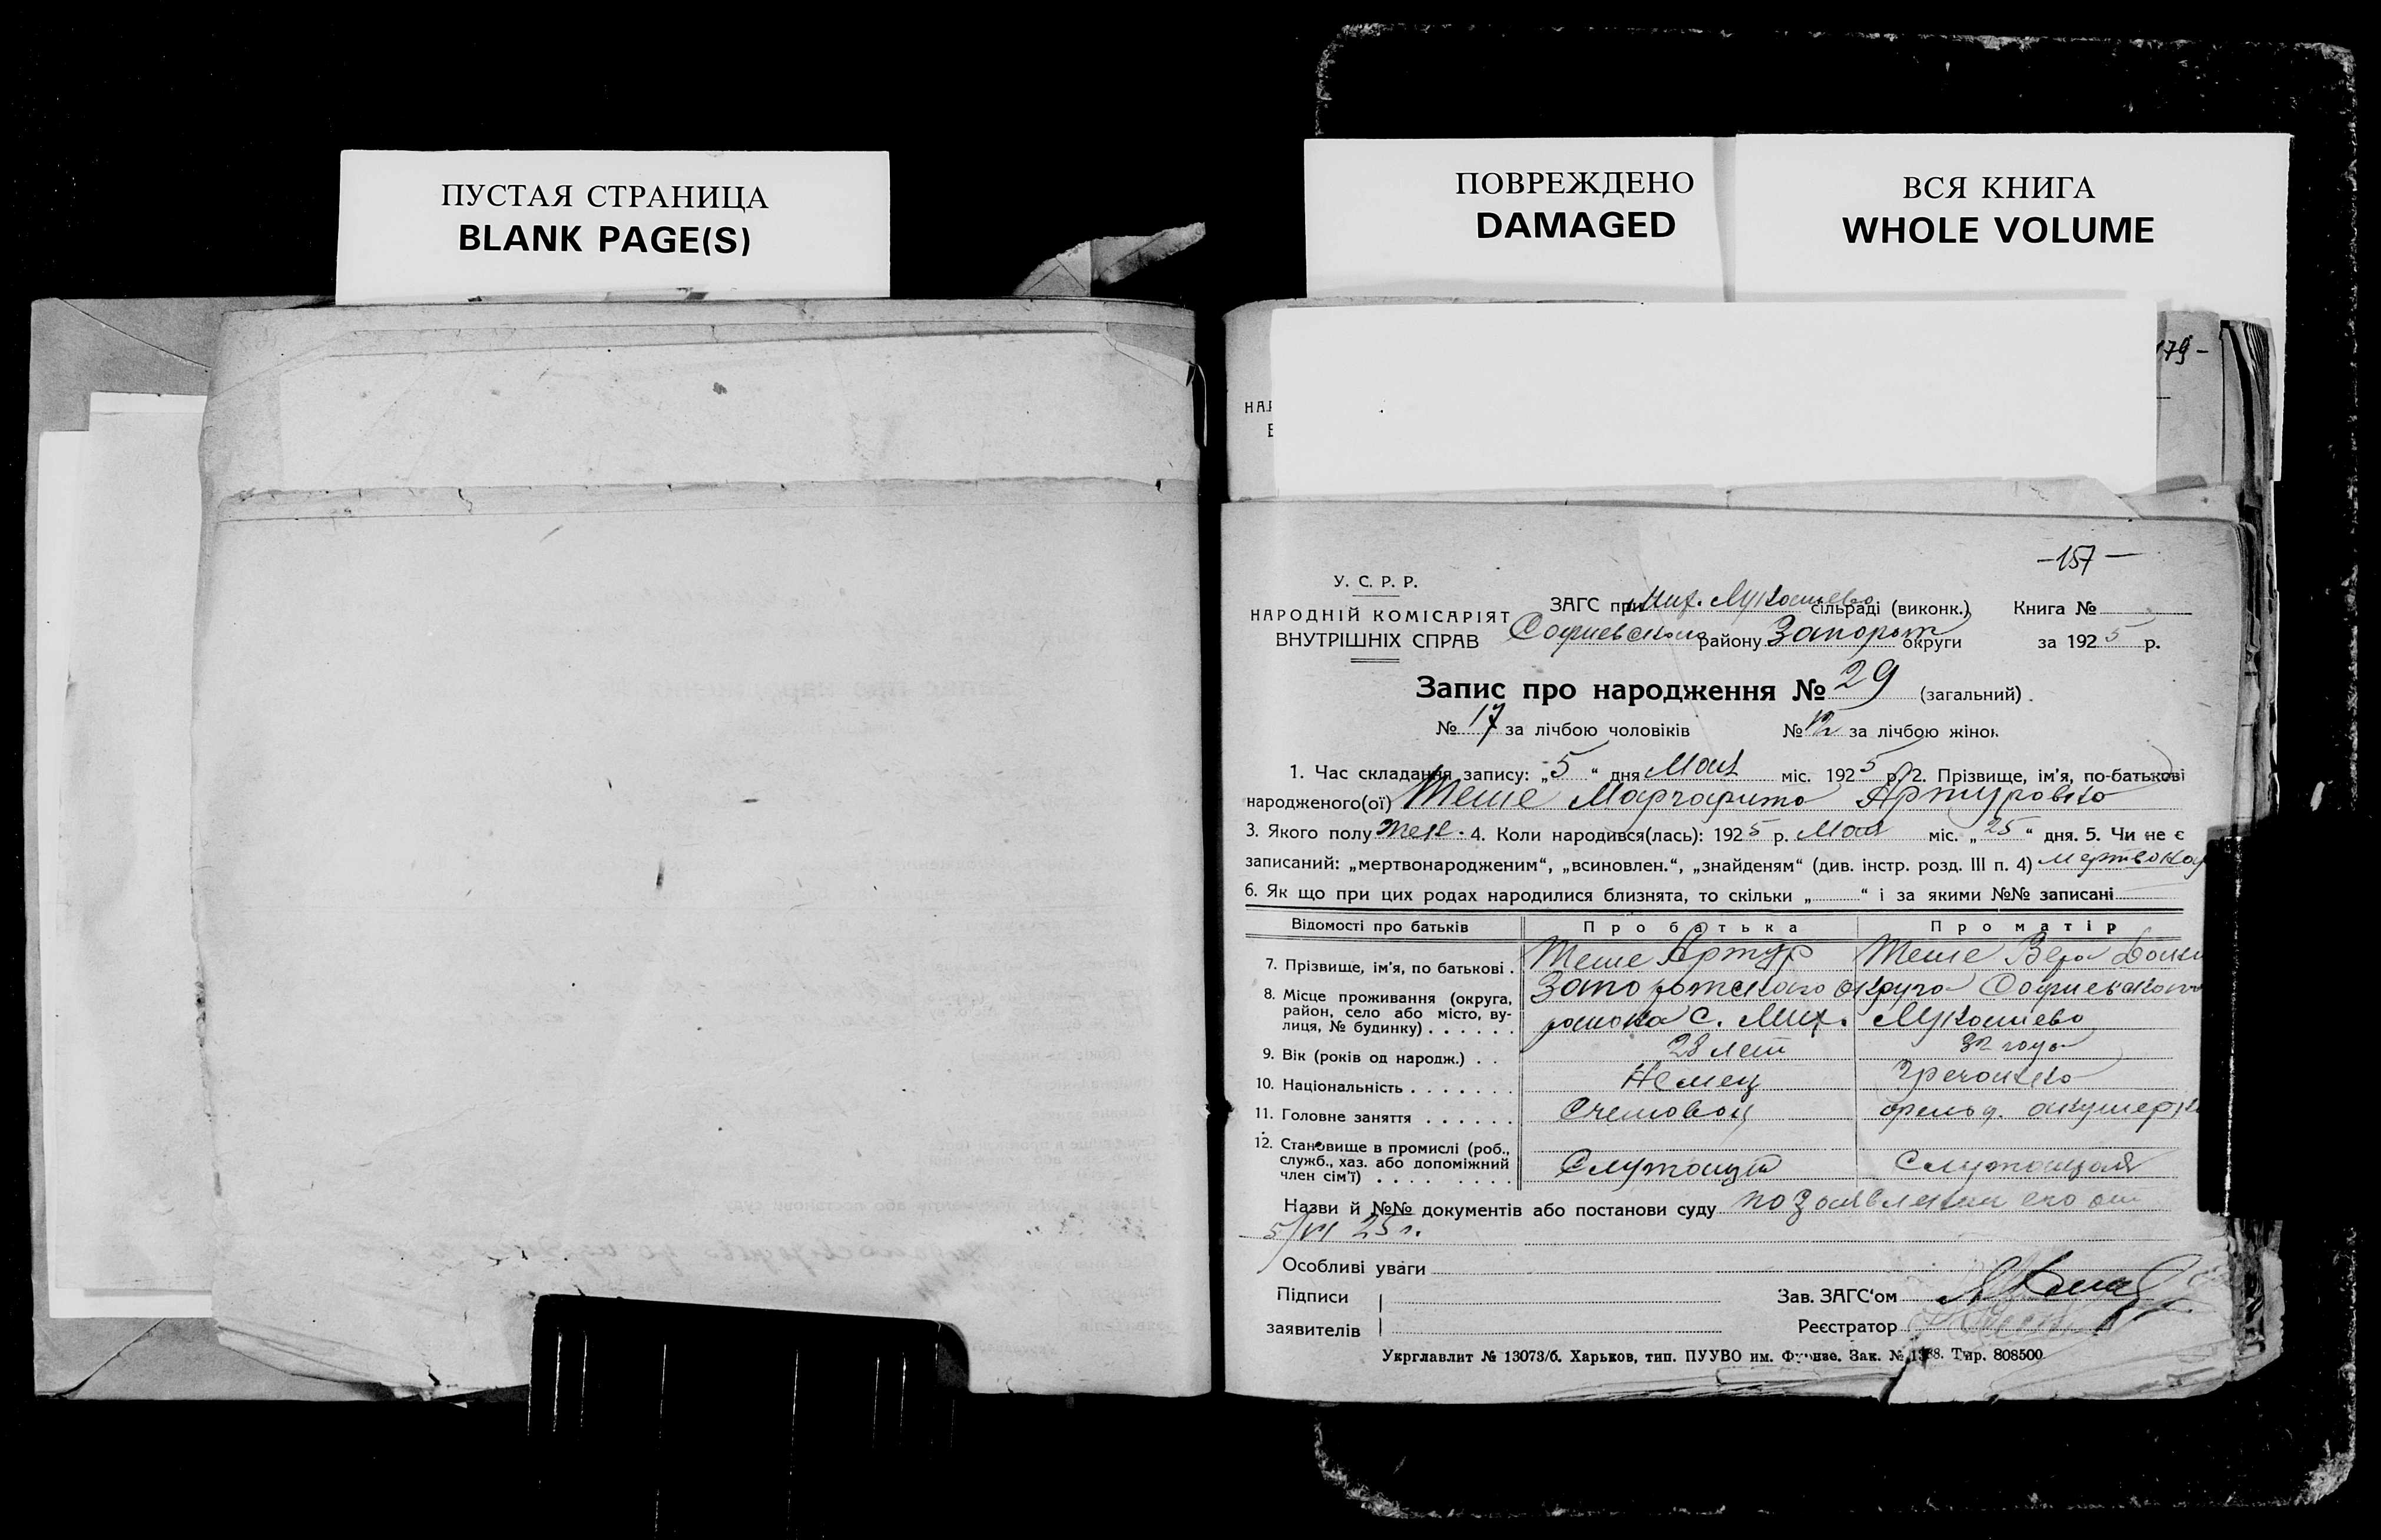 ПУСТАЯ СТРАНИЦА
BLANK PAGE(S)
ПОВРЕЖДЕНО
DAMAGED
ВСЯ КНИГА
WHOLE VOLUME
179 -
НА
– 157 –
У. С. Р. Р.
НАРОДНІЙ КОМІСАРІЯТ
ВНУТРІШНІХ СПРАВ
ЗАГС при Мих. Лукашево сільраді (виконк.)
Софиевского району Запорож округи
Книга №
за 1925 р.
Запис про народження № 29 (загальний)
№ 17 за лічбою чоловіків № 12 за лічбою жінок
1. Час складання запису: „5“ дня Мая міс. 1925 р. 2. Прізвище, ім'я, по-батькові
народженого(ої) Теше Маргарита Артуровна
3. Якого полу жен. 4. Коли народився(лась): 1925 р. Мая міс. „25“ дня. 5. Чи не є
записаний: „мертвонародженим“, „всиновлен.“, „знайденям“ (див. інстр. розд. III п. 4) мертвонар
6. Як що при цих родах народилися близнята, то скільки „ “ і за якими №№ записані
Відомості про батьків Про батька Про матір
7. Прізвище, ім'я, по батькові . Теше Артур Теше Вера
8. Місце проживання (округа, район, село або місто, вулиця, № будинку) . . . . . . Запорожского округа Софиевского
района с. Мих. Лукашево
9. Вік (років од народж.) . . 28 лет 32 года
10. Національність . . . . . . . Немец Гречанка
11. Головне заняття . . . . . . Счетовод фельд. акушерк
12. Становище в промислі (роб., служб., хаз. або допоміжний член сім'ї) . . . . . . . . Служащий Служащая
Назви й №№ документів або постанови суду по заявлению его от
5/VI 25 г.
Особливі уваги
Підписи
заявителів
Зав. ЗАГС'ом
Реєстратор
Укрглавлит № 13073/б. Харьков, тип. ПУУВО им. Фрунзе. Зак. № Тир. 808500